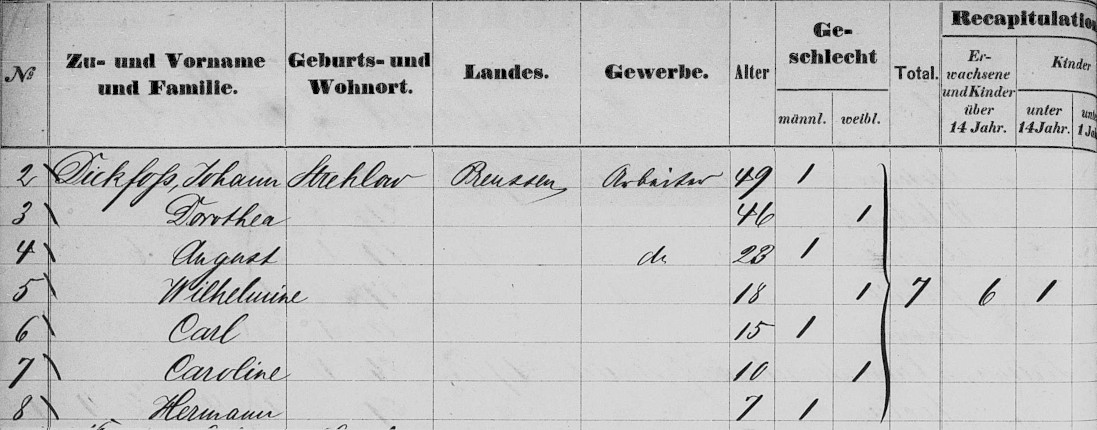 № Zu- und Vorname und Familie. Geburts- und Wohnort. Landes. Gewerbe. Alter Ge-schlecht männl. weibl. Total. Recapitulation Er-wachsene und Kinder über 14 Jahr. Kinder unter 14 Jahr.
2 Dickfoss, Johann Strehlow Preussen Arbeiter 49 1
3 Dorothea 46 1
4 August do 23 1
5 Wilhelmine 18 1 7 6 1
6 Carl 15 1
7 Caroline 10 1
8 Hermann 7 1